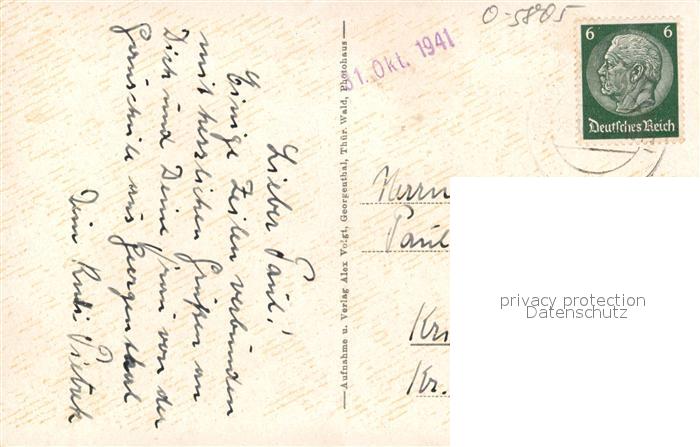 O-5805
6 6
Deutsches Reich
31. Okt. 1941
Lieber Paul!
Einige Zeilen verbunden
mit herzlichen Grüßen an
Dich und Deine Frau von der
Gauschule aus Georgenthal
Dein Rudi Pietrek
Aufnahme u. Verlag Alex Voigt, Georgenthal, Thür. Wald, Photohaus
Herrn
Paul
Kri
Kr.
privacy protection
Datenschutz